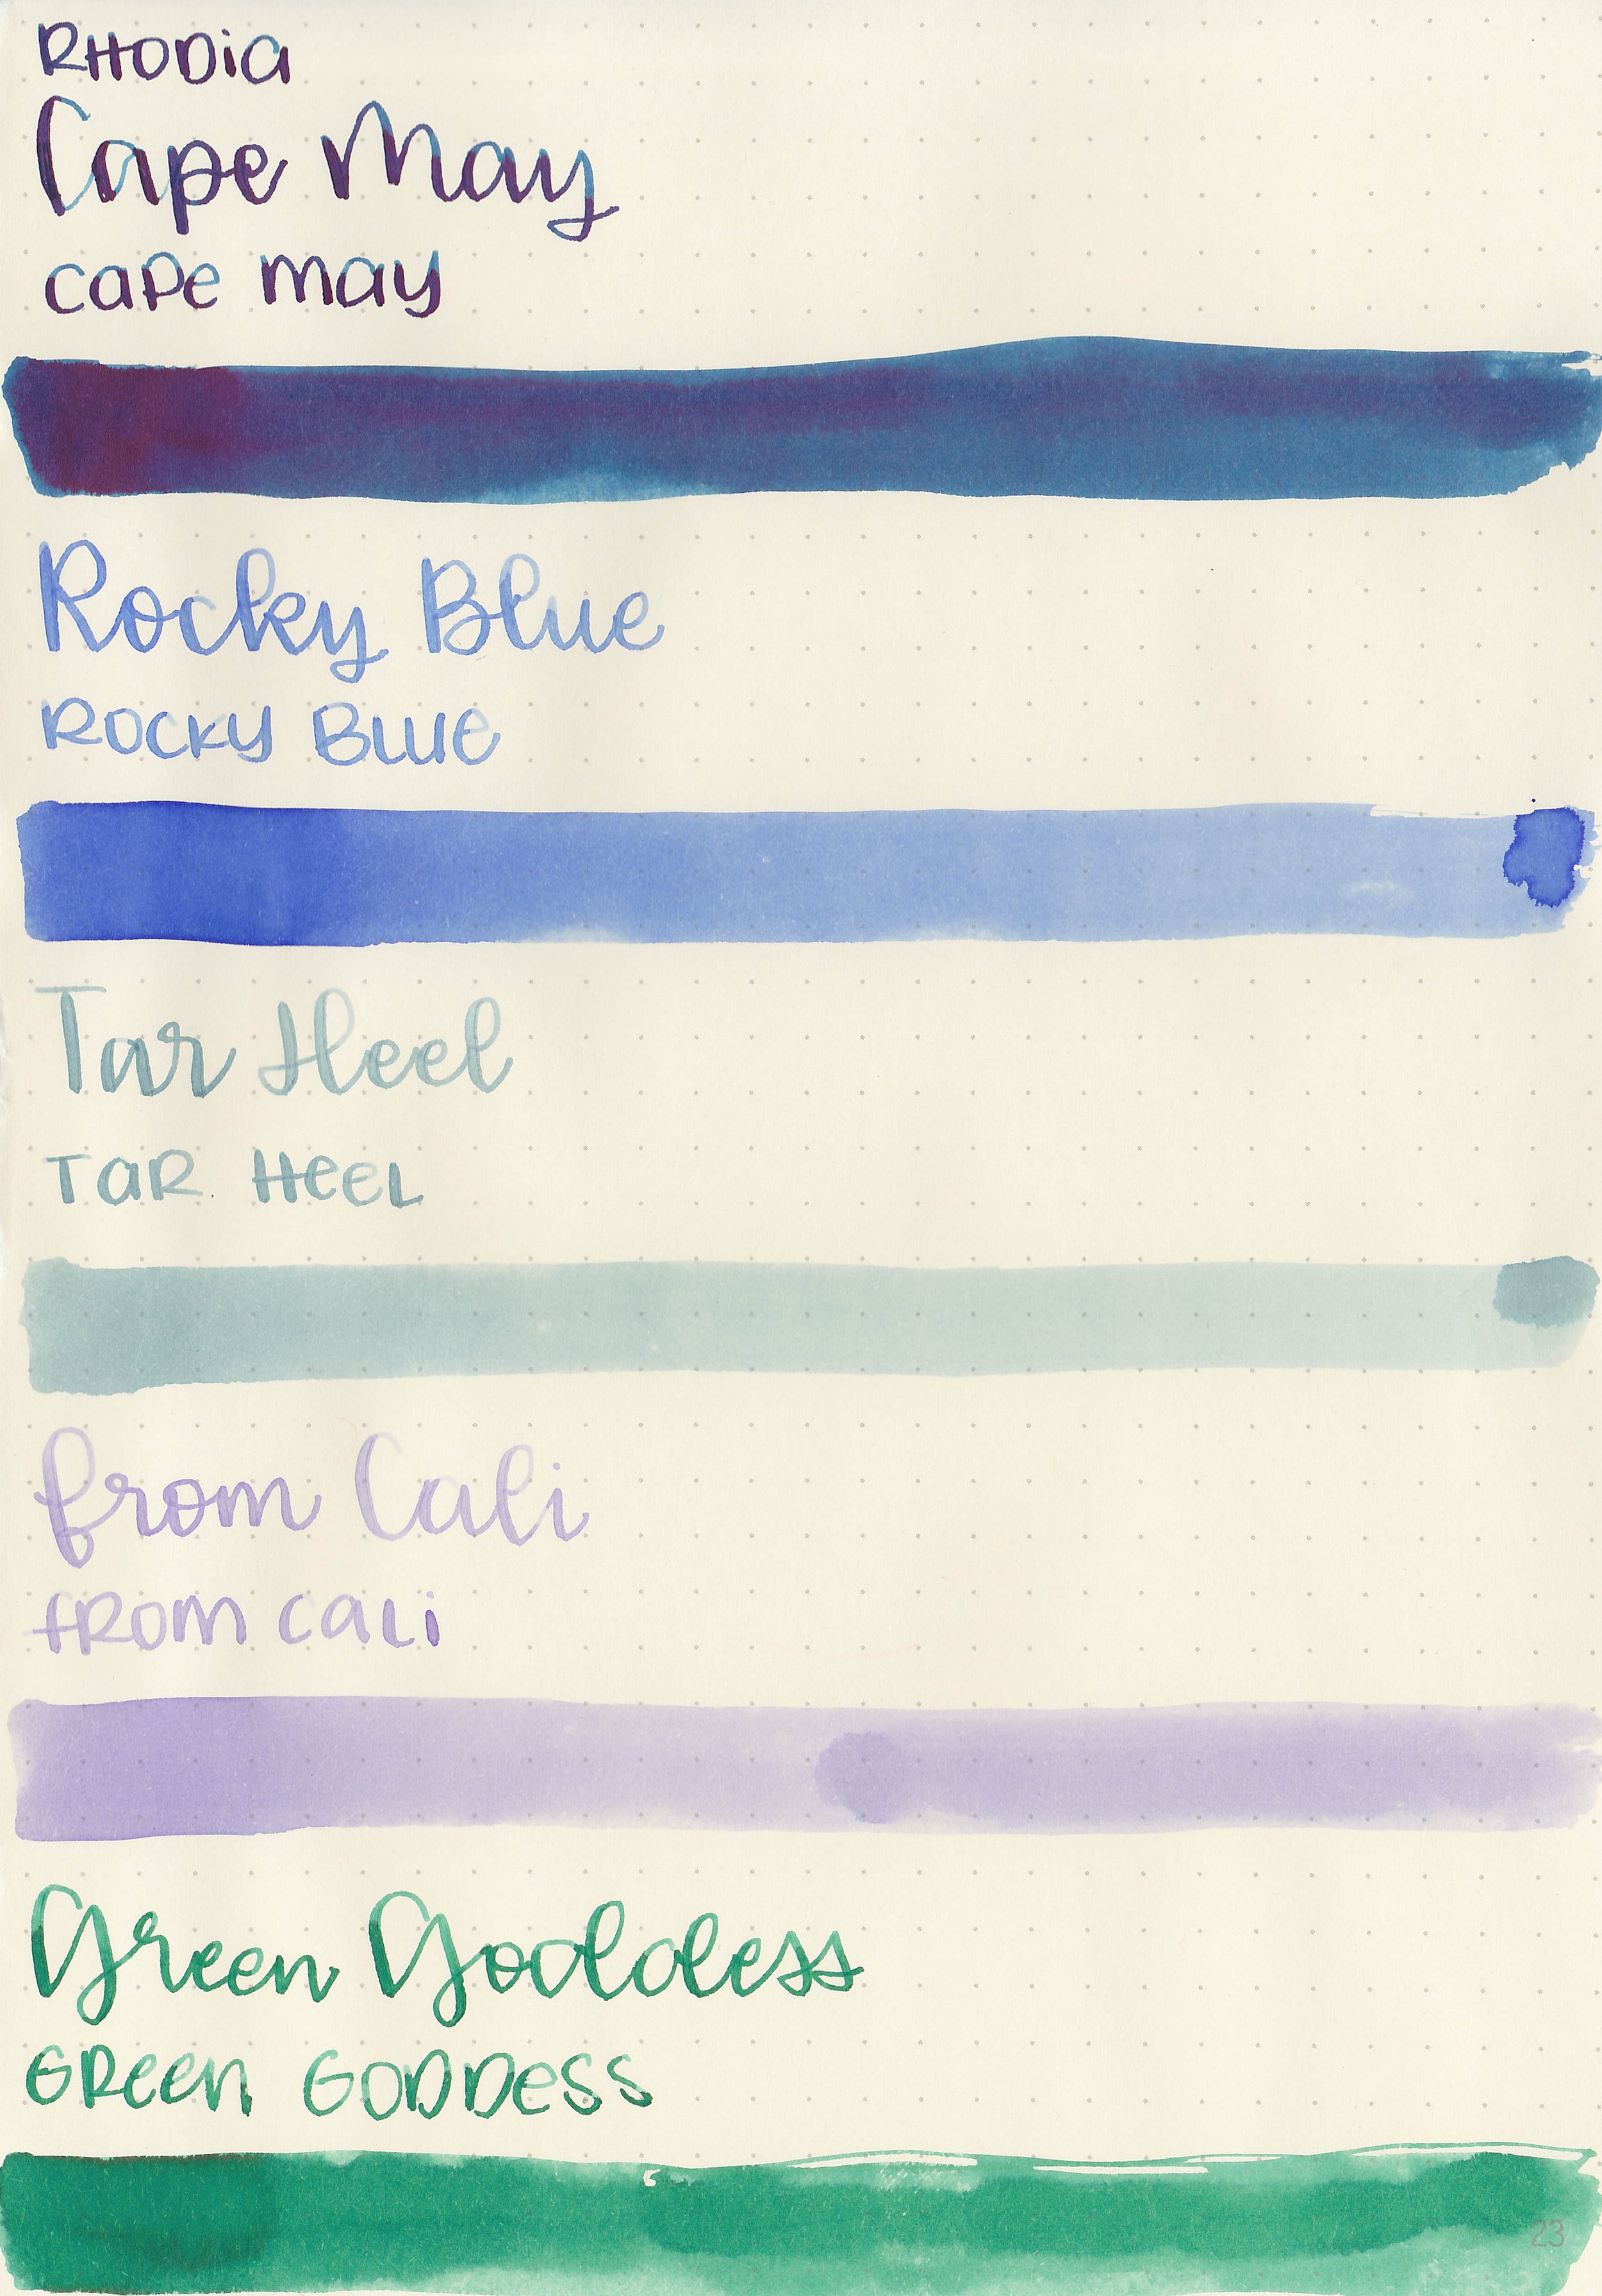 RHODia
Cape May
cape may
Rocky Blue
ROCKY BLUE
Tar Heel
TaR HeeL
from Cali
fROM CaLi
Green Goddess
GReen GODDess
23